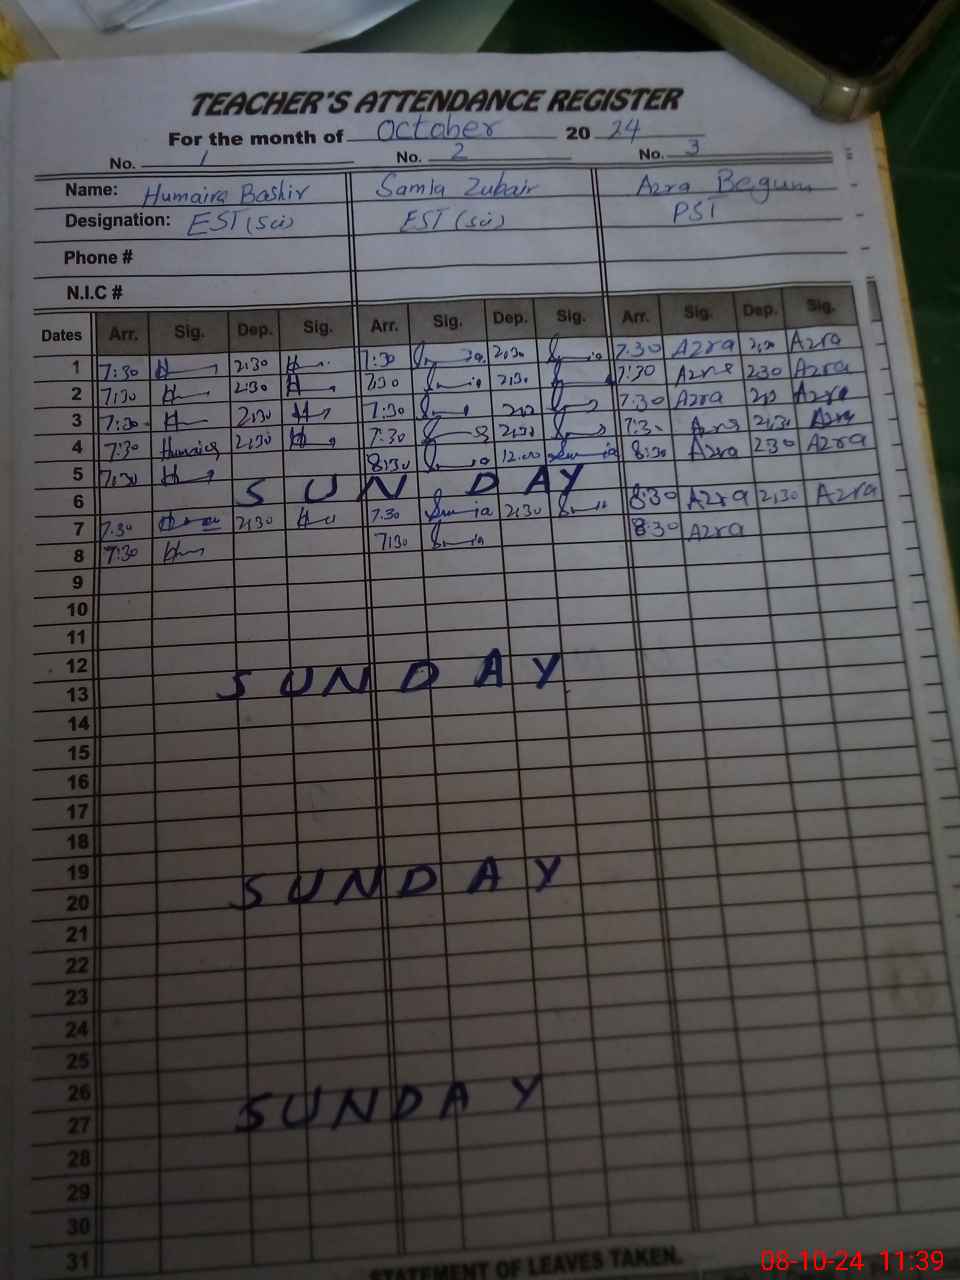 TEACHER'S ATTENDANCE REGISTER
For the month of October 20 24
No. 1 No. 2 No. 3
Name: Humaira Bashir Samia Zubair Azra Begum
Designation: EST (Sci) EST (Sci) PST
Phone #
N.I.C #
Dates Arr. Sig. Dep. Sig. Arr. Sig. Dep. Sig. Arr. Sig. Dep. Sig.
1 7:30 2:30 7:30 2:30 7:30 Azra 2:30 Azra
2 7:30 2:30 7:30 2:30 7:30 Azra 2:30 Azra
3 7:30 2:30 7:30 7:30 Azra Azra
4 7:30 Humaira 2:30 7:30 2:30 7:30 Azra 2:30 Azra
5 7:30 8:30 12:00 8:30 Azra 2:30 Azra
6 SUNDAY
7 7:30 2:30 7:30 Samia 2:30 8:30 Azra 2:30 Azra
8 7:30 7:30 8:30 Azra
9
10
11
12
13 SUNDAY
14
15
16
17
18
19
20 SUNDAY
21
22
23
24
25
26
27 SUNDAY
28
29
30
31
STATEMENT OF LEAVES TAKEN.
08-10-24 11:39